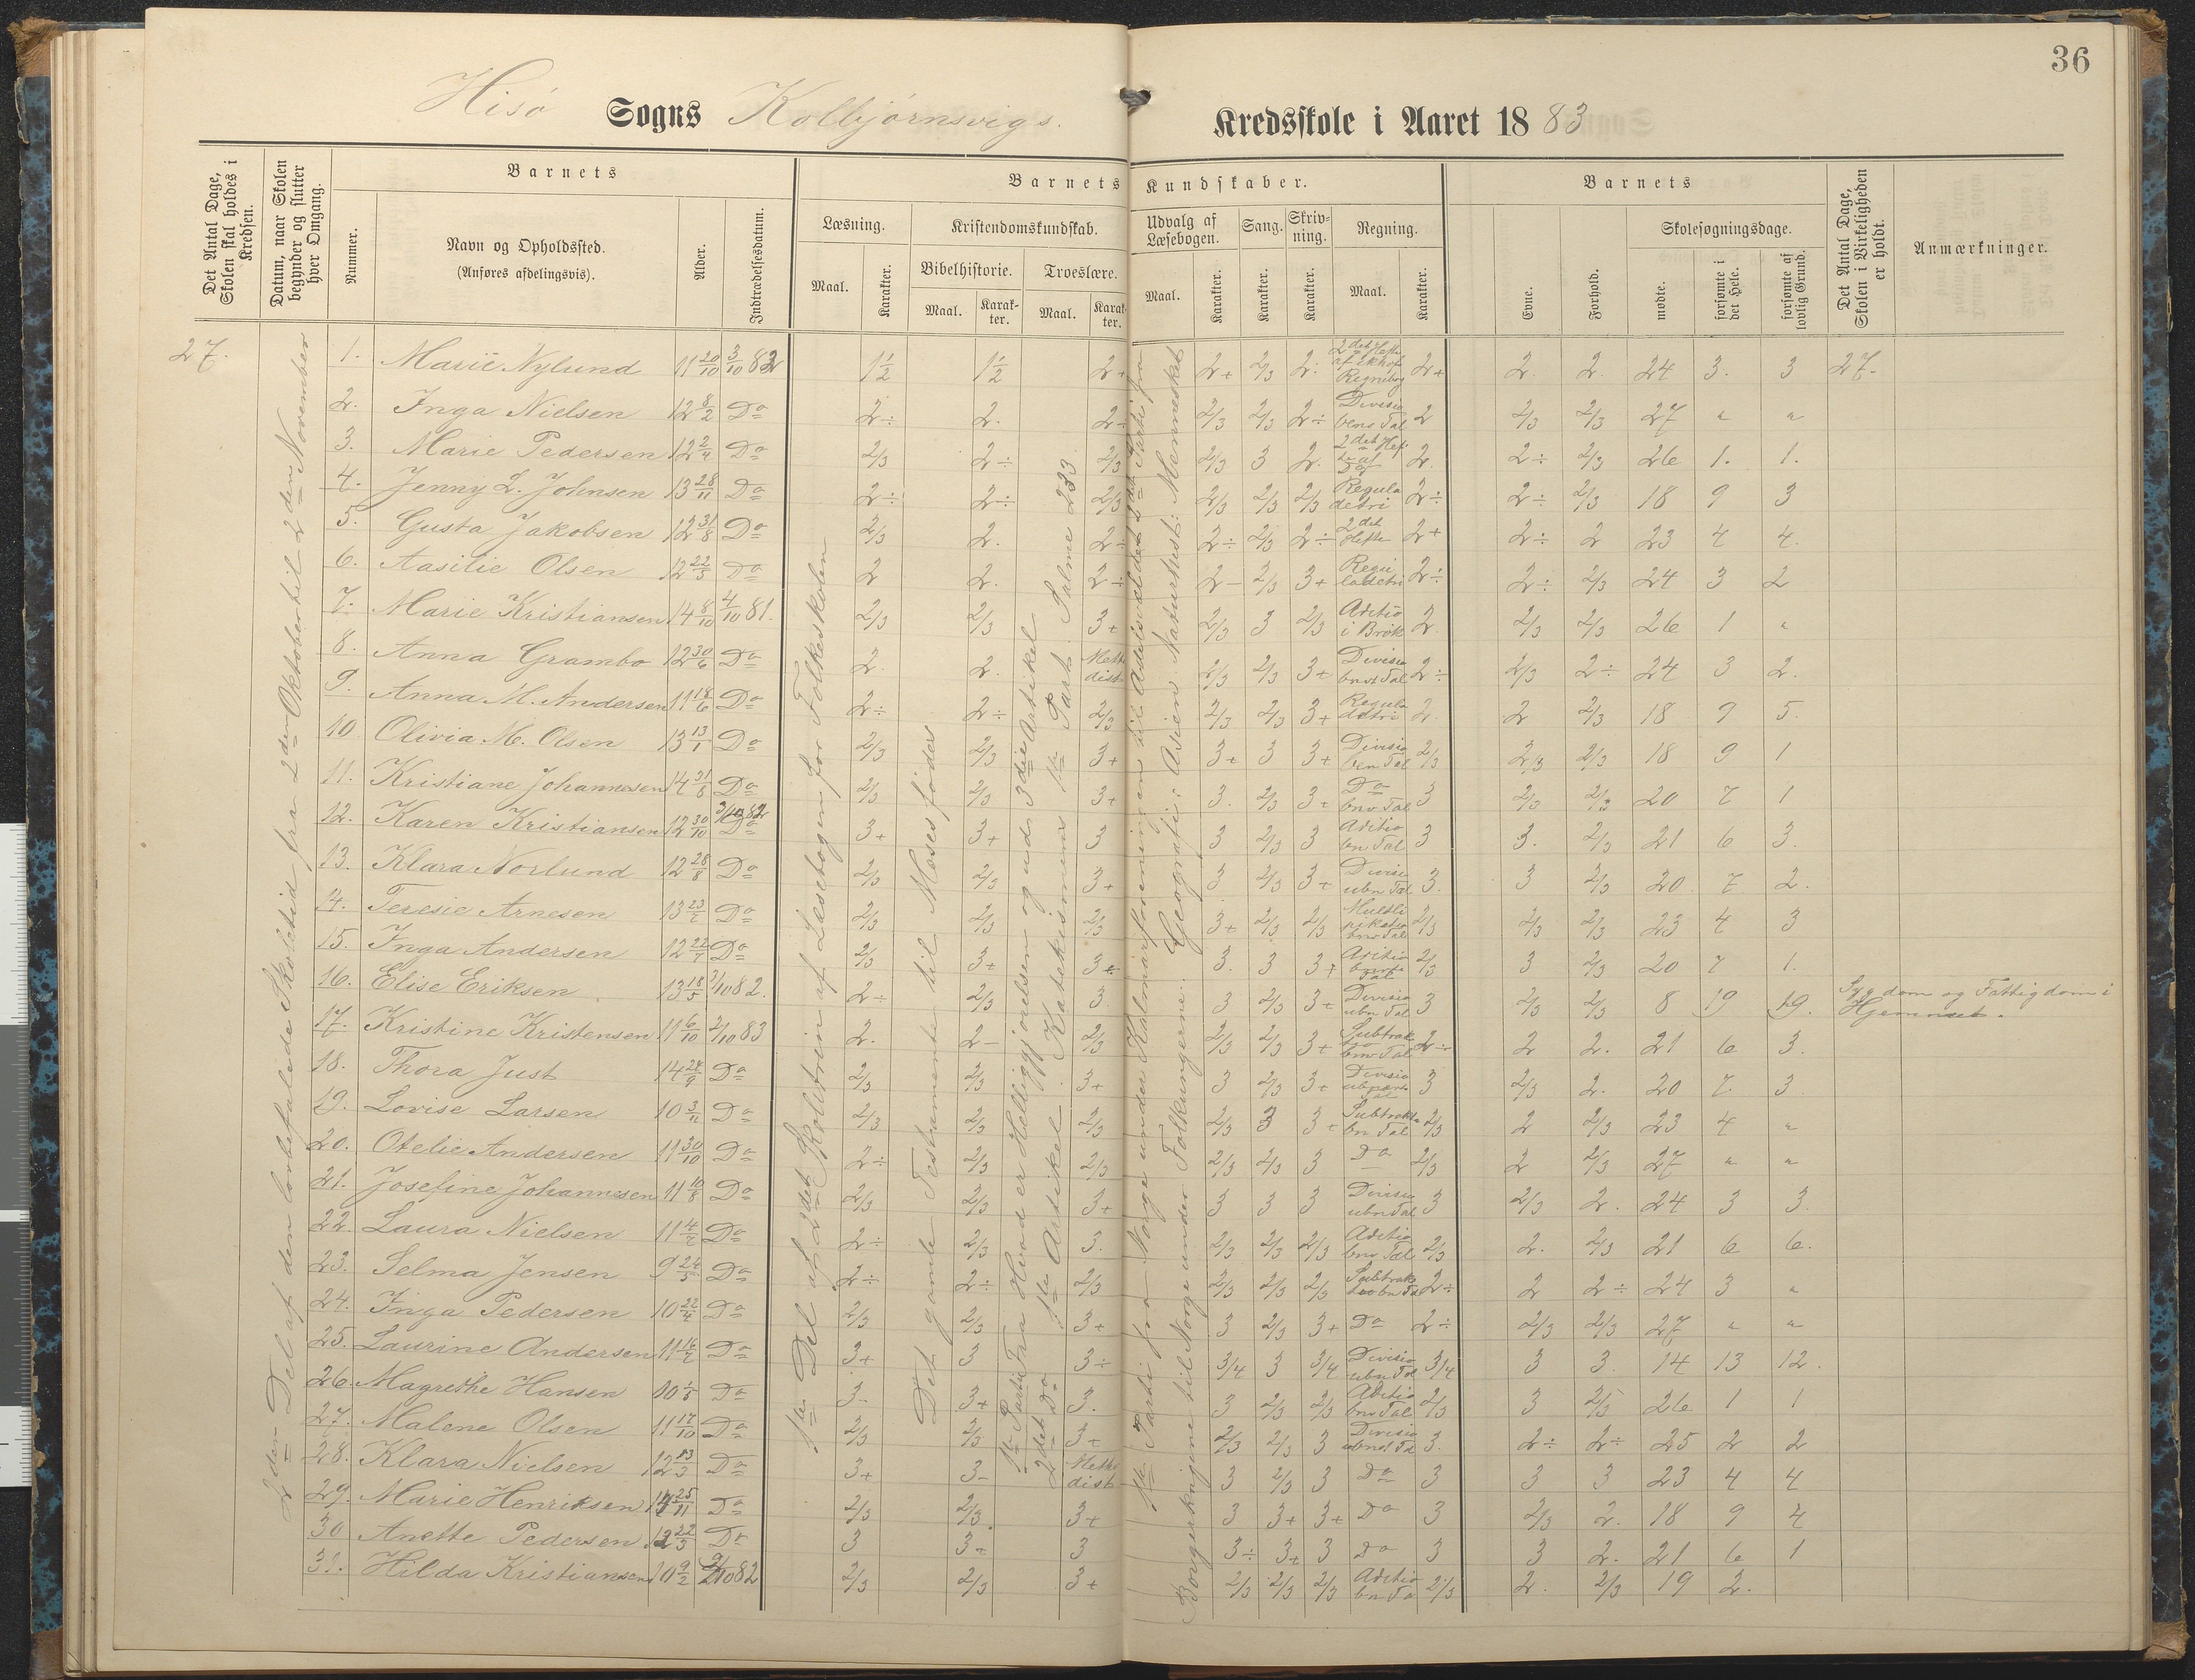 36
Hisö Sogns Kolbjörnsvigs. Kredsskole i Aaret 1883
Det Antal Dage, Skolen skal holdes i Kredsen.
Datum, naar Skolen begynder og slutter hver Omgang.
Barnets
Nummer.
Navn og Opholdssted.
(Anføres afdelingsvis).
Alder.
Indtrædelsesdatum.
Barnets Kundskaber.
Læsning.
Maal. Karakter.
Kristendomskundskab.
Bibelhistorie. Troeslære.
Maal. Karakter. Maal. Karakter.
Udvalg af Læsebogen.
Maal. Karakter.
Sang.
Karakter.
Skrivning.
Karakter.
Regning.
Maal. Karakter.
Barnets
Evne. Forhold.
Skolesøgningsdage.
mødte. forsømte i det Hele. forsømte af lovlig Grund.
Det Antal Dage, Skolen i Virkeligheden er holdt.
Anmærkninger.
2den Del af den lovbefalede Skoletid fra 2den Oktober til 2den November
1ste Del af 2det Skoletrin af Læsebogen for Folkeskolen
Det gamle Testamente til Moses föder
1ste Parti Fra Hvad er Helliggjörelsen og ud 3die Artikel
2det Do 1ste Artikel. Katekismens 1ste Part. Salme 233
1ste Parti fra Norge under Kalmarforeningen til
Borgerkrigene til Norge under Folkungerne. Geografi: Asien. Naturhist: Mennesket
27. 1. Marie Nylund 11 20/10 3/10 82 1½ 1½ 2+ 2+ 2/3 2. 2det Hefte af Ekhof Regnebog 2+ 2. 2. 24 3. 3 27.
2. Inga Nielsen 12 8/2 Do 2÷ 2. 2÷ 2/3 2/3 2÷ Divisio bens Tal 2 2/3 2/3 27 " "
3. Marie Pedersen 12 2/4 Do 2/3 2÷ 2/3 2/3 3 2. 2det Hef 2. 2÷ 2/3 26 1. 1.
4. Jenny L. Johnsen 13 28/11 Do 2÷ 2÷ 2/3 2/3 2/3 2/3 Regula detri 2÷ 2÷ 2/3 18 9 3
5. Gusta Jakobsen 12 31/8 Do 2/3 2. 2÷ 2÷ 2/3 2÷ 2det Hefte 2+ 2÷ 2 23 4 4.
6. Aasilie Olsen 12 22/5 Do 2 2. 2÷ 2- 2/3 3+ Regu ladetri 2÷ 2÷ 2/3 24 3 2
7. Marie Kristiansen 14 8/10 4/10 81. 2/3 2/3 3+ 2/3 3 2/3 Aditio i Brök 2. 2/3 2/3 26 1 "
8. Anna Grambo 12 30/6 Do 2. 2. Meto dist 2/3 2/3 3+ Divisio bns Tal 2÷ 2/3 2÷ 24 3 2.
9. Anna M. Andersen 11 18/6 Do 2÷ 2÷ 2/3 2/3 2/3 3+ Regula detri 2. 2 2/3 18 9 5.
10 Olivia M. Olsen 13 13/1 Do 2/3 2/3 3+ 3+ 3 3+ Divisio ben Tal 2/3 2/3 2/3 18 9 1
11. Kristiane Johannesen 14 31/8 Do 2/3 2/3 3+ 3. 2/3 3+ Do bns Tal 3 2/3 2/3 20 7 1
12. Karen Kristiansen 12 30/10 3/10 82 3+ 3+ 3 3 2/3 3 Aditio bn Tal 3 3. 2/3 21 6 3.
13. Klara Norlund 12 28/8 Do 2/3 2/3 3+ 3 2/3 3+ Divisi ubn Tal 3. 3 2/3 20 7 2.
14. Teresie Arnesen 13 23/7 Do 2/3 2/3 2/3 3+ 2/3 2/3 Multi pikatio bns Tal 2/3 2/3 2/3 23 4 3
15. Inga Andersen 12 22/7 Do 2/3 3+ 3+ 3. 3 3+ Aditio Tal 2/3 3 2/3 20 7 1.
16. Elise Eriksen 13 18/5 3/10 82. 2÷ 2/3 3. 3 2/3 3+ Divisio ubn Tal 3 2/3 2/3 8 19 19. Sygdom og Fattigdom i Hjemmet.
17. Kristine Kristensen 11 6/10 2/10 83 2. 2- 2/3 2/3 2/3 3+ Subtrak tio bns Tal 2÷ 2 2. 21 6 3.
18. Thora Just 14 24/9 Do 2/3 2/3 3+ 3 2/3 3+ Divisio 3 2/3 2. 20 7. 3
19. Lovise Larsen 10 3/11 Do 2/3 2/3 2/3 2/3 3 3+ Subtrakt bn Tal 2/3 2 2/3 23 4 "
20. Otelie Andersen 11 30/10 Do 2÷ 2/3 2/3 2/3 2/3 3 Do 2/3 2 2/3 27 " "
21. Josefine Johannesen 11 10/8 Do 2/3 2/3 3+ 3 3 3 Divisio ubn Tal 3 2/3 2. 24 3 3.
22. Laura Nielsen 11 4/7 Do 2÷ 2/3 3. 2/3 2/3 2/3 Aditio bns Tal 2/3 2. 2/3 21 6 6.
23. Selma Jensen 9 24/5 Do 2÷ 2÷ 2/3 2/3 2/3 2/3 Subtrak 2÷ 2 2÷ 24 3 "
24. Inga Pedersen 10 22/4 Do 2/3 2/3 3+ 3 2/3 3+ Do 2÷ 2/3 2/3 27 " "
25. Laurine Andersen 11 16/7 Do 3+ 3 3÷ 3/4 3 3/4 Divisio ubn Tal 3/4 3 3. 14 13 12.
26. Magrethe Hansen 10 1/8 Do 3- 3+ 3. 3 2/3 2/3 Aditio bns Tal 2/3 3 2/3 26 1 1
27. Malene Olsen 11 17/10 Do 2/3 2/3 3+ 2/3 2/3 3 Divisio 3. 2÷ 2÷ 25 2 2
28. Klara Nielsen 12 13/3 Do 3+ 3- Meto dist 3 2/3 3 Do 3 3 3 23 4 4
29. Marie Henriksen 14 25/11 Do 2/3 2/3. 3+ 3 3+ 3+ Do 3 2/3 2. 18 9 4
30 Anette Pedersen 12 22/3 Do 3 3+ 3 3÷ 3+ 3 Do 3 3 2. 21 6 1
31. Hilda Kristiansen 10 9/2 2/10 82 2/3 2/3 3+ 2/3 2/3 2/3 Aditio bn Ta 2/3 2. 2/3 19 2.